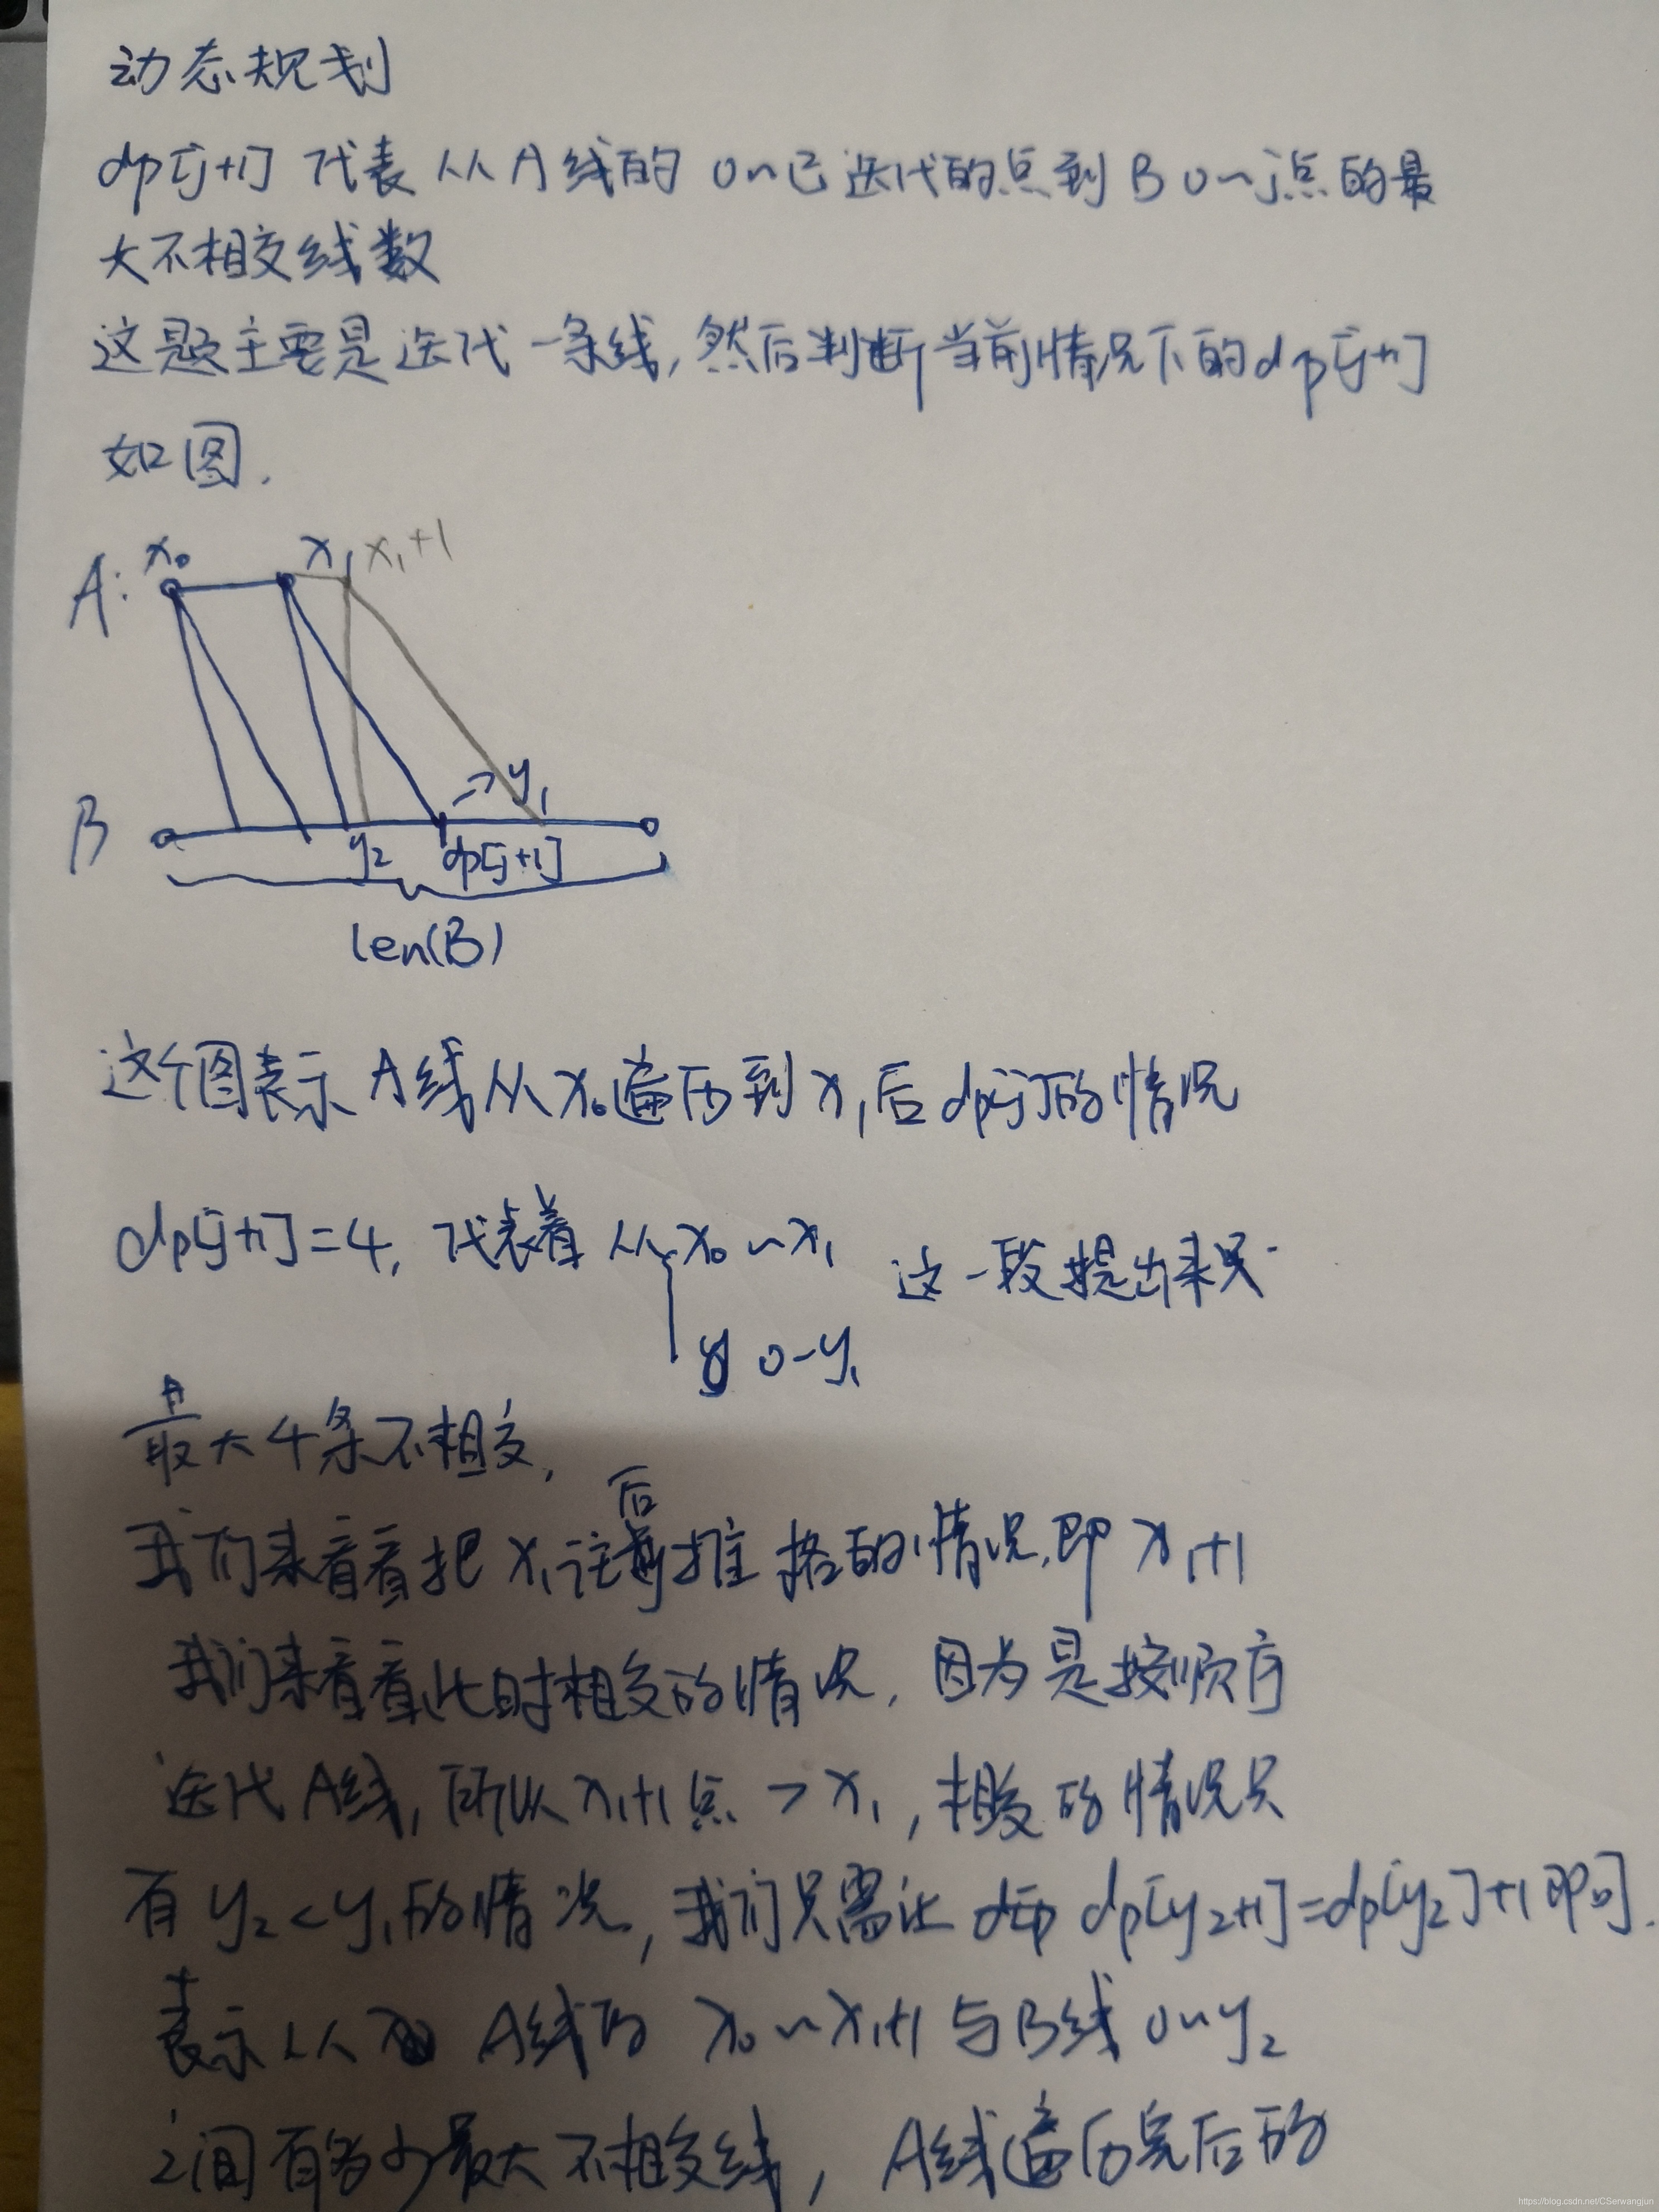 动态规划
dp[j+1] 代表 从A线的 0~已迭代的点到 B 0~j点的最
大不相交线数
这题主要是迭代一条线,然后判断当前情况下的dp[j+1]
如图.
A: x₀ x₁ x₁+1
→y₁
B y₂ dp[j+1]
len(B)
这个图表示 A线从x₀遍历到x₁后dp[j]的情况
dp[j+1]=4, 代表着 从x₀~x₁ 这一段提出来只
y 0-y₁
最大4条不相交,
后
我们来看看把x₁往推格的情况,即 x₁+1
我们来看看此时相交的情况, 因为是按顺序
迭代A线, 所以x₁+1点 > x₁, 相交的情况只
有 y₂<y₁的情况, 我们只需让 dp[y₂+1]=dp[y₂]+1即可.
表示从 A线的 x₀~x₁+1 与B线 0~y₂
之间有多少最大不相交线, A线遍历完后的
https://blog.csdn.net/CSerwangjun